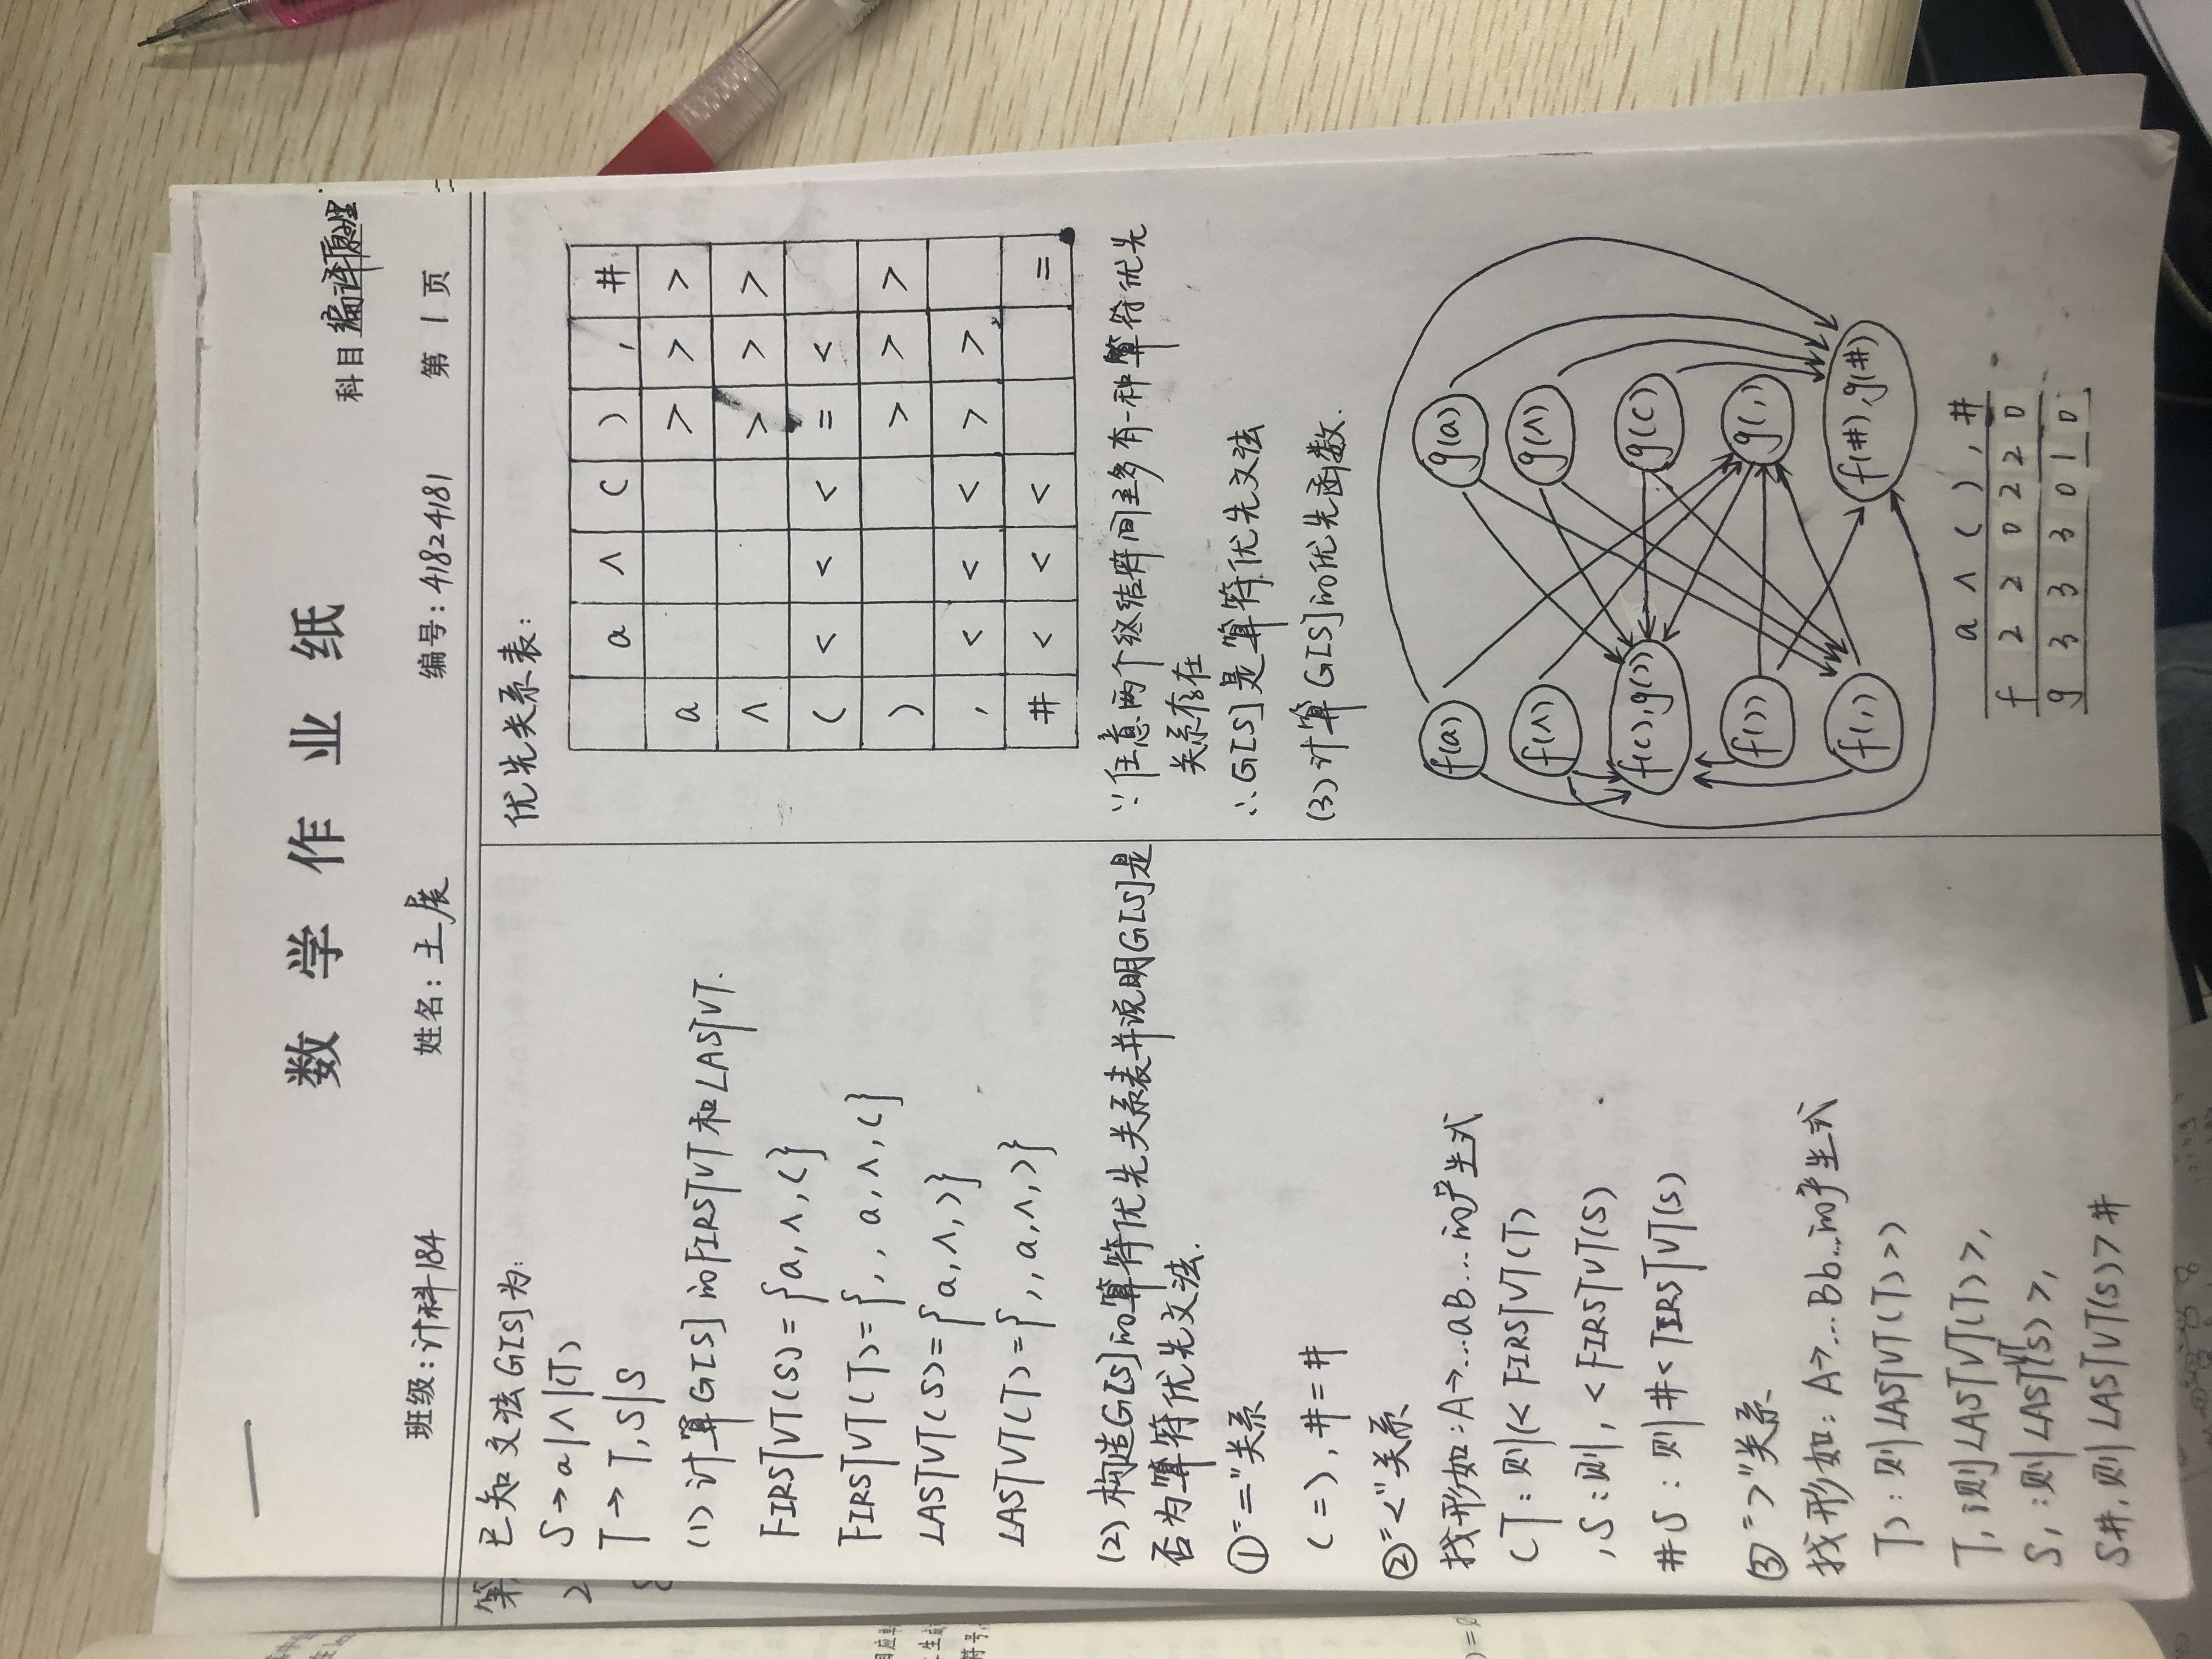 数学作业纸
科目 编译原理
班级: 计科184 姓名: 王展 编号: 41824181 第 1 页
已知文法G[S]为:
S→a|∧|(T)
T→T,S|S
(1) 计算G[S]的FIRSTVT和LASTVT.
FIRSTVT(S)={a,∧,(}
FIRSTVT(T)={,, a,∧,(}
LASTVT(S)={a,∧,)}
LASTVT(T)={,,a,∧,)}
(2) 构造G[S]的算符优先关系表并说明G[S]是
否为算符优先文法.
①"="关系
(=),#=#
②"<"关系
找形如:A→...aB...的产生式
(T:则(<FIRSTVT(T)
,S:则,<FIRSTVT(S)
#S:则#<FIRSTVT(S)
③">"关系
找形如:A→...Bb...的产生式
T):则LASTVT(T)>)
T,:则LASTVT(T)>,
S,:则LASTVT(S)>,
S#,则LASTVT(S)>#
优先关系表:
a ∧ ( ) , #
a > > >
∧ > > >
( < < < = <
) > > >
, < < < > >
# < < < =
∵任意两个终结符间至多有一种算符优先
关系存在
∴G[S]是算符优先文法
(3)计算G[S]的优先函数.
f(a) g(a)
f(∧) g(∧)
f((),g()) g(()
f()) g(,)
f(,) f(#),g(#)
a ∧ ( ) , #
f 2 2 0 2 2 0
g 3 3 3 0 1 0